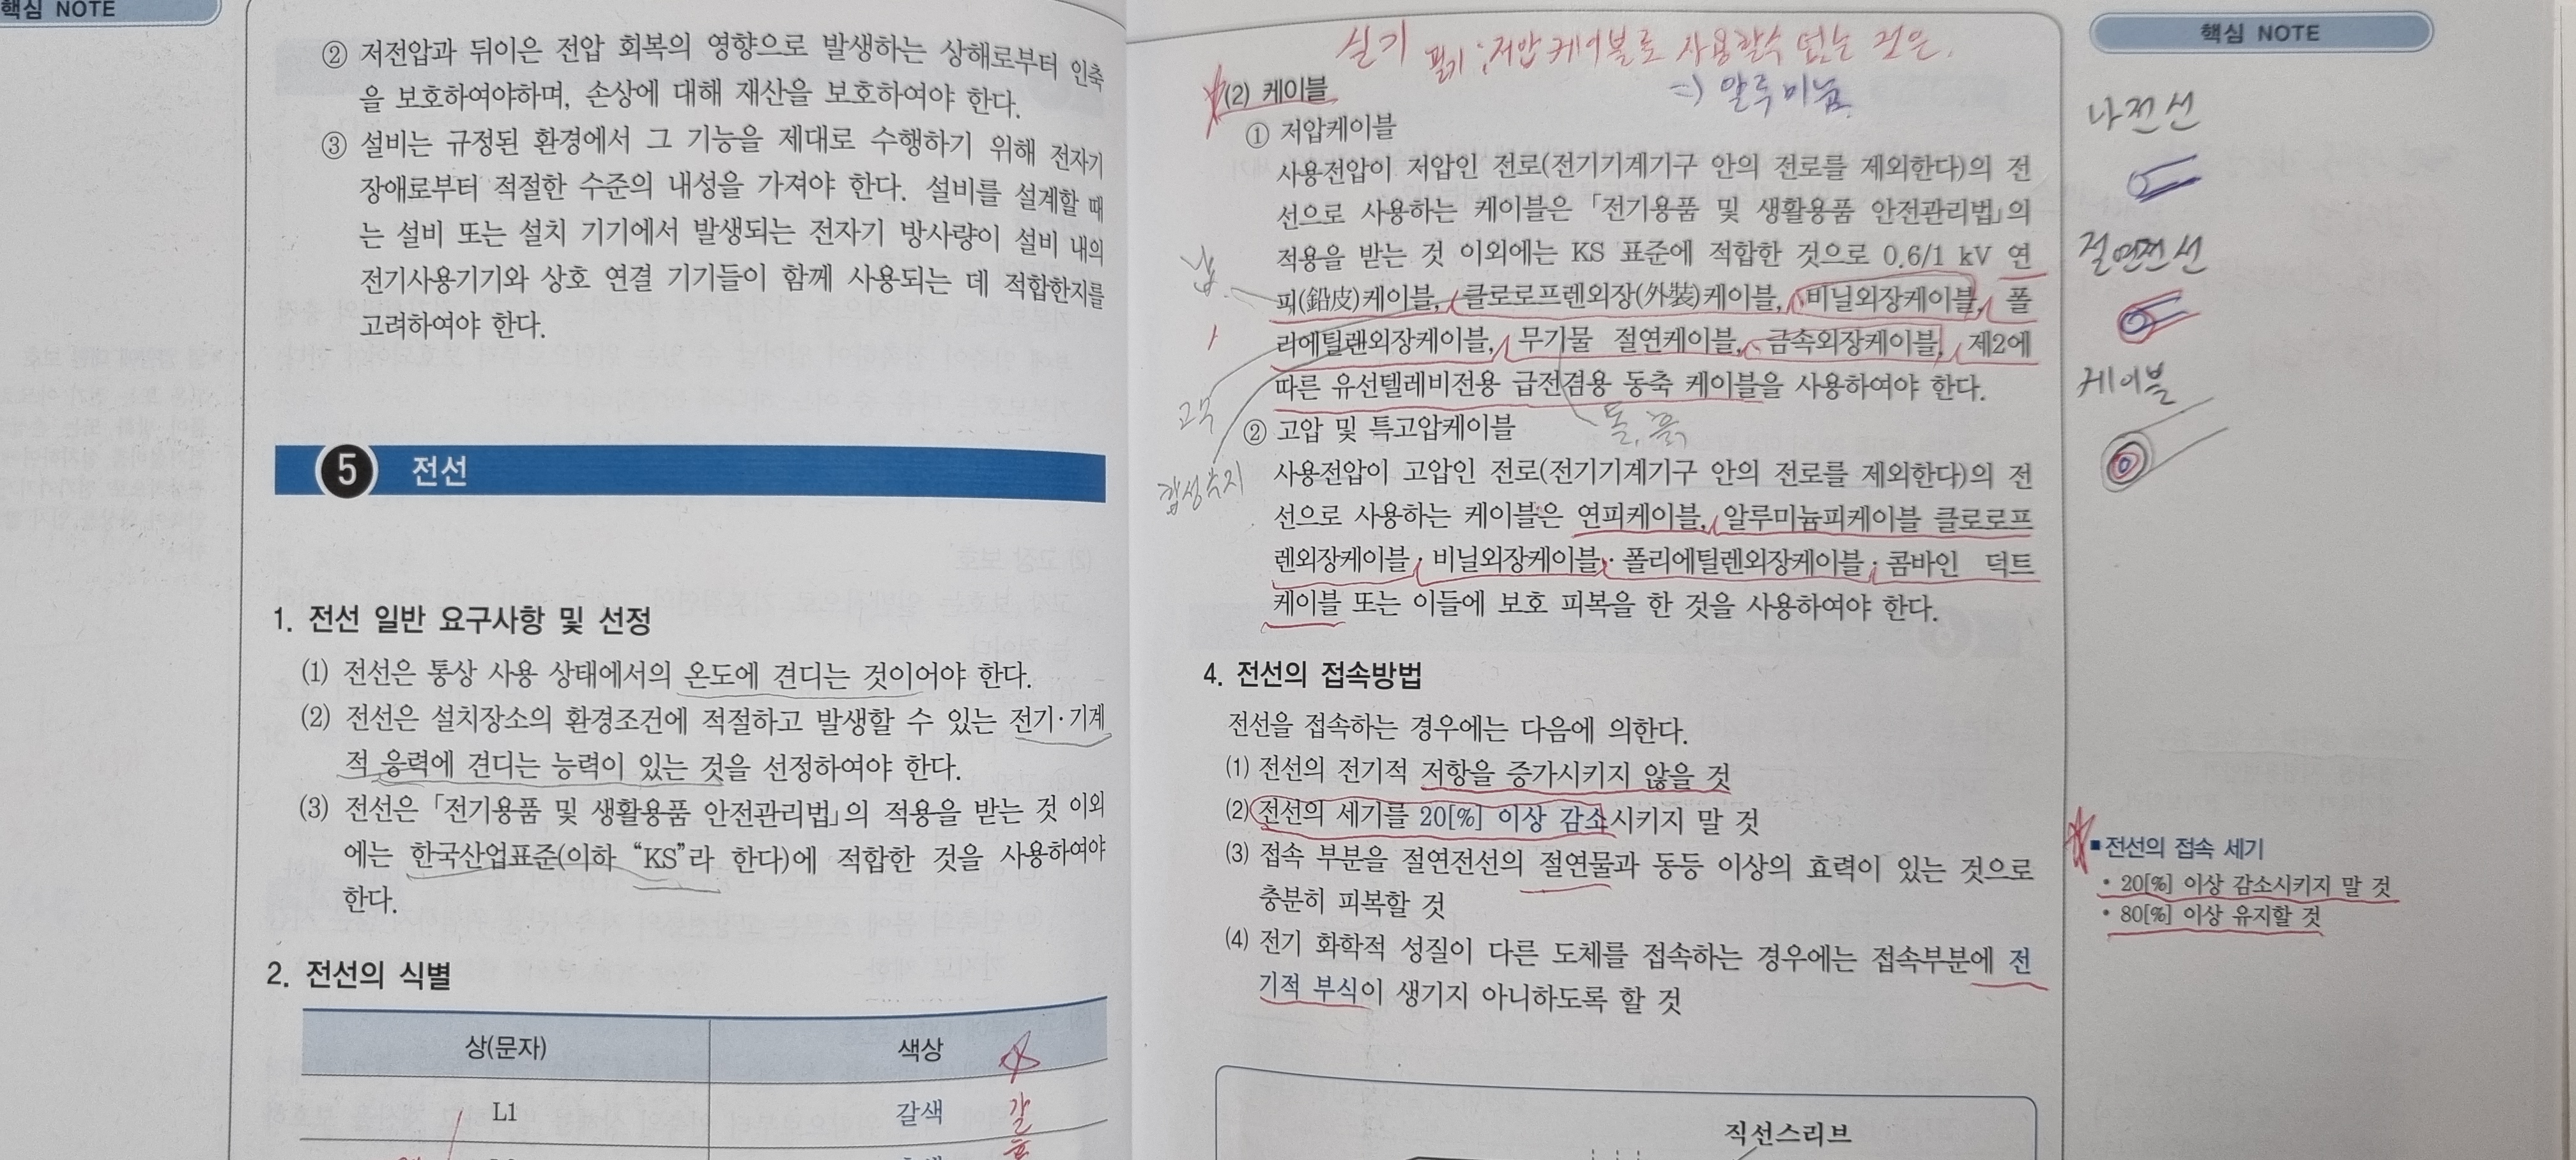 핵심 NOTE
② 저전압과 뒤이은 전압 회복의 영향으로 발생하는 상해로부터 인축
을 보호하여야하며, 손상에 대해 재산을 보호하여야 한다.
③ 설비는 규정된 환경에서 그 기능을 제대로 수행하기 위해 전자기
장애로부터 적절한 수준의 내성을 가져야 한다. 설비를 설계할 때
는 설비 또는 설치 기기에서 발생되는 전자기 방사량이 설비 내의
전기사용기기와 상호 연결 기기들이 함께 사용되는 데 적합한지를
고려하여야 한다.
5 전선
1. 전선 일반 요구사항 및 선정
(1) 전선은 통상 사용 상태에서의 온도에 견디는 것이어야 한다.
(2) 전선은 설치장소의 환경조건에 적절하고 발생할 수 있는 전기·기계
적 응력에 견디는 능력이 있는 것을 선정하여야 한다.
(3) 전선은 「전기용품 및 생활용품 안전관리법」의 적용을 받는 것 이외
에는 한국산업표준(이하 “KS”라 한다)에 적합한 것을 사용하여야
한다.
2. 전선의 식별
상(문자) 색상
L1 갈색 갈
실기 필기 : 저압케이블로 사용할수 없는 것은.
=) 알루미늄
(2) 케이블
① 저압케이블
사용전압이 저압인 전로(전기기계기구 안의 전로를 제외한다)의 전
선으로 사용하는 케이블은 「전기용품 및 생활용품 안전관리법」의
적용을 받는 것 이외에는 KS 표준에 적합한 것으로 0.6/1 kV 연
납
피(鉛皮)케이블, 클로로프렌외장(外裝)케이블, 비닐외장케이블, 폴
리에틸랜외장케이블, 무기물 절연케이블, 금속외장케이블, 제2에
따른 유선텔레비전용 급전겸용 동축 케이블을 사용하여야 한다.
고무
돌, 흙
② 고압 및 특고압케이블
합성수지
사용전압이 고압인 전로(전기기계기구 안의 전로를 제외한다)의 전
선으로 사용하는 케이블은 연피케이블, 알루미늄피케이블 클로로프
렌외장케이블·비닐외장케이블·폴리에틸렌외장케이블·콤바인 덕트
케이블 또는 이들에 보호 피복을 한 것을 사용하여야 한다.
4. 전선의 접속방법
전선을 접속하는 경우에는 다음에 의한다.
(1) 전선의 전기적 저항을 증가시키지 않을 것
(2) 전선의 세기를 20[%] 이상 감소시키지 말 것
(3) 접속 부분을 절연전선의 절연물과 동등 이상의 효력이 있는 것으로
충분히 피복할 것
(4) 전기 화학적 성질이 다른 도체를 접속하는 경우에는 접속부분에 전
기적 부식이 생기지 아니하도록 할 것
직선스리브
핵심 NOTE
나전선
절연전선
케이블
■전선의 접속 세기
• 20[%] 이상 감소시키지 말 것
• 80[%] 이상 유지할 것